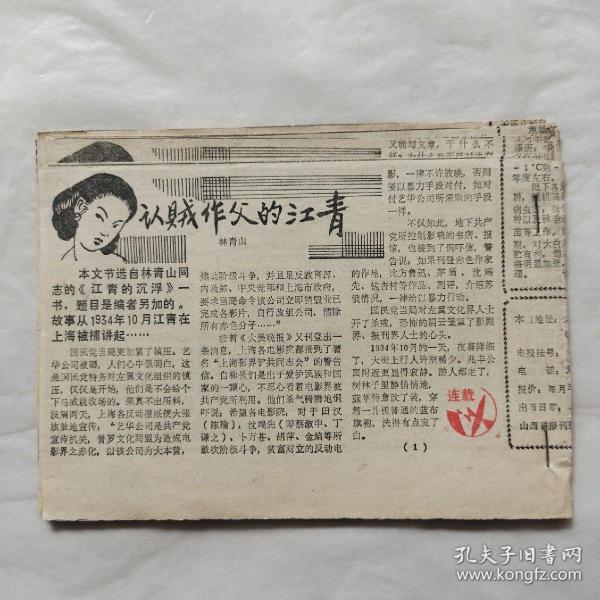 认贼作父的江青
林青山
本文节选自林青山同
志的《江青的沉浮》一
书，题目是编者另加的。
故事从1934年10月江青在
上海被捕讲起……
国民党当局更加紧了镇压。艺
华公司被砸，人们心中很明白，这
是国民党特务对左翼文化组织的镇
压，仅仅是开场，他们是不会给个
下马威就收场的。果真不出所料，
没隔两天，上海各反动报纸便大张
旗鼓地宣传：“艺华公司是共产党
宣传机关，普罗文化同盟为造成电
影界之赤化，以该公司为大本营，
煽动阶级斗争，并且是反政府部、
内政部、中央党部和上海市政府，
要求当局命令该公司立即销毁业已
完成各影片，自行改组公司，清除
所有赤色分子……”
接着《大美晚报》又刊登出一
条消息，上海各电影院都接到了署
名“上海影界铲共同志会”的警告
信。自称他们是出于爱护民族和国
家的一颗心，不忍心看着电影界被
共产党所利用。他们杀气腾腾地恫
吓说：希望各电影院，对于田汉
（陈瑜），沈端先（即蔡叔申、丁
谦之）、卜万苍、胡萍、金焰等所
鼓吹阶级斗争，贫富对立的反动电
影，一律不许放映，否则
要以暴力手段对付，如对
付艺华公司所采取的手段
一样。
不仅如此，地下共产
党所控制影响的书店、报
馆，也接到了恫吓信，警
告说：如果刊登赤色作家
的作品，比方鲁迅、茅盾、沈端
先、钱杏村等作品、剧评、介绍苏
俄情况，一律给以暴力行动。
国民党当局对左翼文化界人士
开了杀戒，恐怖的阴云笼罩了影剧
界、报刊界人士的心头。
1934年10月的一天，夜幕降临
了，大街上行人许渐稀少，兆丰公
园附近更显得寂静。游人都走了，
树林子里静悄悄地，
蓝苹特意改了装，穿
着一件极普通的蓝布
旗袍，洗得有点发了
白。
（1）
连载
本
电报挂号：
电
报价：每月
出版日期：
山西省报刊
孔夫子旧书网
www.kongfz.com